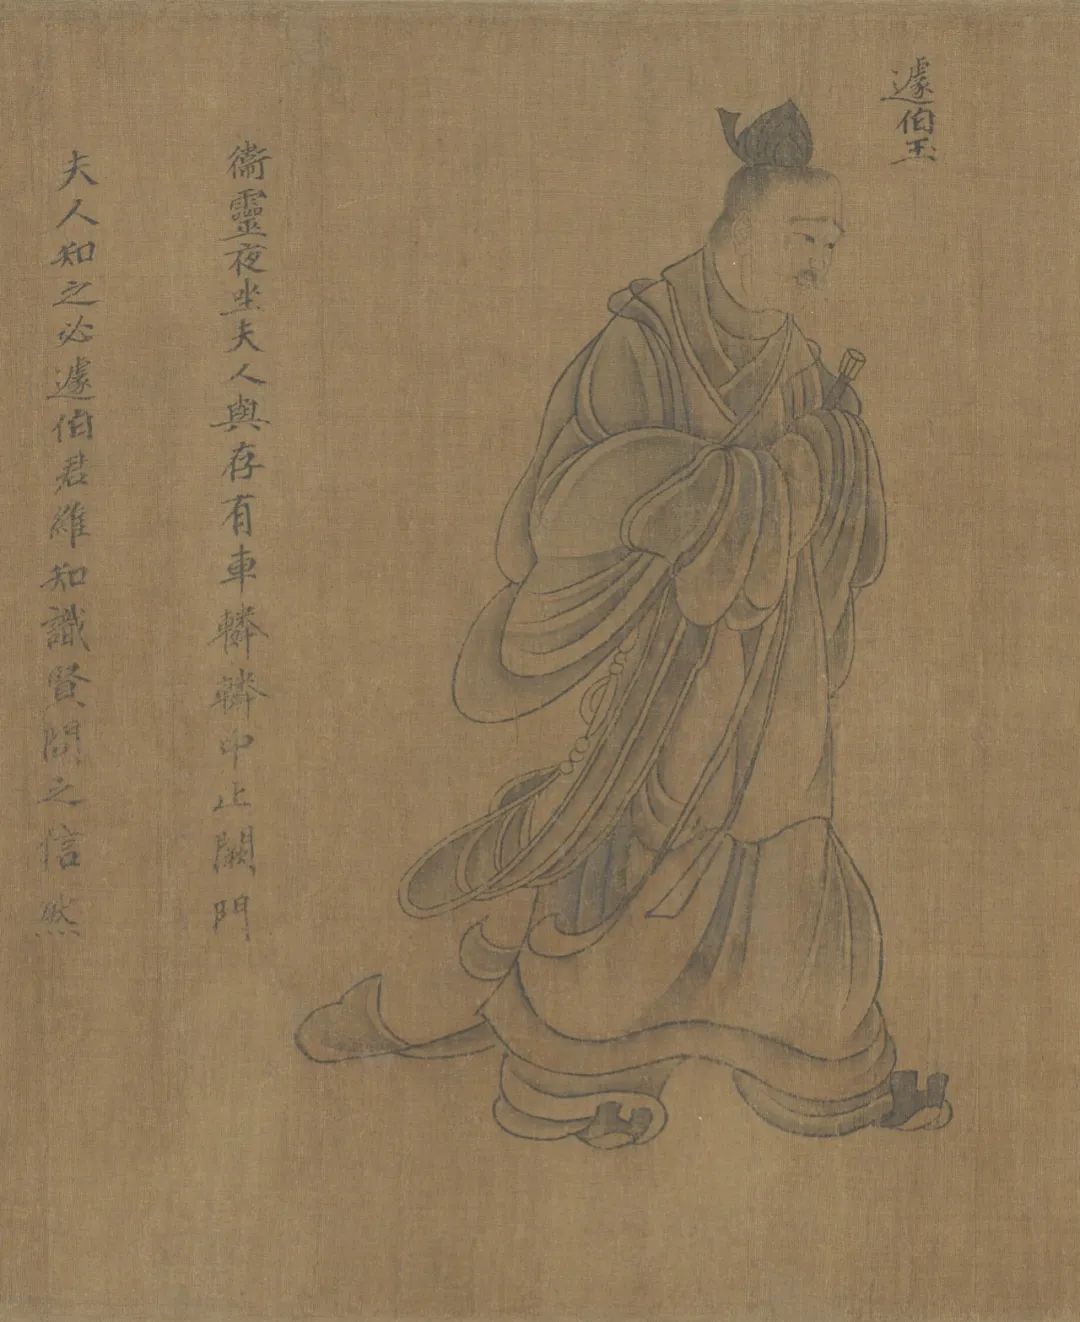 遽伯玉
衞靈夜坐夫人與存有車轔轔中止闕門
夫人知之必遽伯君維知識賢問之信然